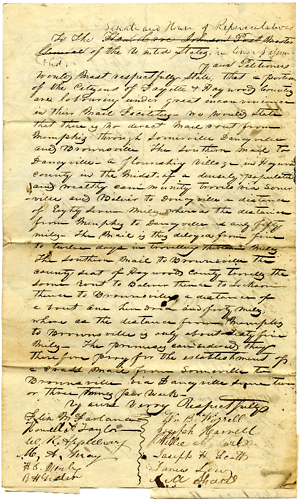 Senate and House of Representatives
To The
General of the United States
Your Petitioners
Would Most respectfully State, that a portion
of the Citizens of Fayette & Haywood County
are labouring under great inconvenience
in their Mail Facilities. We would state
that there is no direct Mail rout from
Memphis through Somerville Dancyville
and Brownsville The Southern Mail to
Dancyville a flourishing Village in Haywood
County in the Midst of a densely populated
and wealthy community travels via Somer
ville and Bolivar to Dancyville a distance
of Eighty Seven Miles whereas the distance
from Memphis to Dancyville is only fifty
Miles. The Mail is thus delayed from
to twelve days in travelling Miles
The Southern Mail to Brownsville the
County seat of Haywood County travels the
same Rout to Bolivar thence to Jackson
thence to Brownsville a distance of
about one hundred and fifty Miles
whereas the distance from Memphis
to Brownsville is only about sixty five
Miles. The premises considered they
therefore pray for the establishment of
a Mail from Somerville to
Brownsville via Dancyville two
or three times per week
Yours Very Respectfully
Powell Taylor
Joseph Harrell
W. R. Appleberry
M. A. May
Joseph H. Scott
James Low